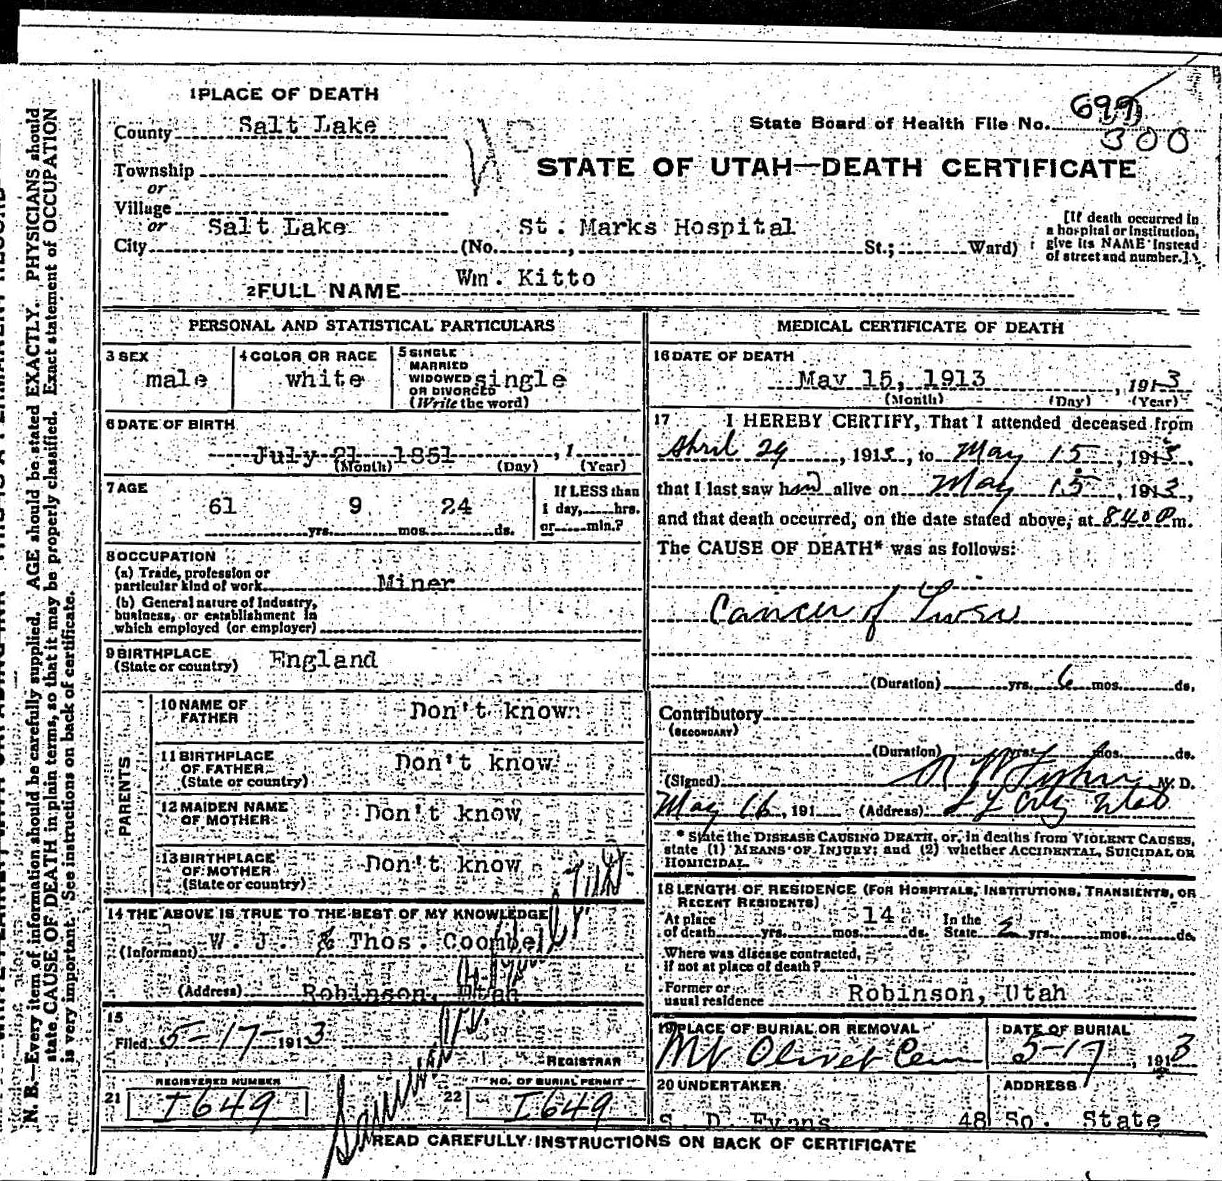 1 PLACE OF DEATH
County Salt Lake
State Board of Health File No. 699
300
Township
or
STATE OF UTAH—DEATH CERTIFICATE
Village
or
City Salt Lake (No. St. Marks Hospital, St.; Ward)
[If death occurred in
a hospital or institution,
give its NAME instead
of street and number.]
2 FULL NAME Wm. Kitto
PERSONAL AND STATISTICAL PARTICULARS
3 SEX
male
4 COLOR OR RACE
white
5 SINGLE
MARRIED
WIDOWED
OR DIVORCED
(Write the word)
single
6 DATE OF BIRTH
July 21 1851, 1
(Month) (Day) (Year)
7 AGE
61 yrs. 9 mos. 24 ds.
If LESS than
1 day, hrs.
or min.?
8 OCCUPATION
(a) Trade, profession or
particular kind of work Miner
(b) General nature of Industry,
business, or establishment in
which employed (or employer)
9 BIRTHPLACE
(State or country) England
PARENTS
10 NAME OF
FATHER Don't know
11 BIRTHPLACE
OF FATHER
(State or country) Don't know
12 MAIDEN NAME
OF MOTHER Don't know
13 BIRTHPLACE
OF MOTHER
(State or country) Don't know
14 THE ABOVE IS TRUE TO THE BEST OF MY KNOWLEDGE
(Informant) W. J. & Thos. Coombe
(Address) Robinson, Utah
15
Filed 5-17- 1913
REGISTRAR
REGISTERED NUMBER
21 I649
NO. OF BURIAL PERMIT
22 I649
MEDICAL CERTIFICATE OF DEATH
16 DATE OF DEATH
May 15, 1913, 1913
(Month) (Day) (Year)
17 I HEREBY CERTIFY, That I attended deceased from
April 29, 1913, to May 15, 1913,
that I last saw him alive on May 15, 1913,
and that death occurred, on the date stated above, at 8:40 P m.
The CAUSE OF DEATH* was as follows:
Cancer of Liver
(Duration) yrs. 6 mos. ds.
Contributory
(SECONDARY)
(Duration) yrs. mos. ds.
(Signed) M. D.
May 16, 191 (Address) S L City Utah
* State the DISEASE CAUSING DEATH, or, in deaths from VIOLENT CAUSES,
state (1) MEANS OF INJURY; and (2) whether ACCIDENTAL, SUICIDAL OR
HOMICIDAL.
18 LENGTH OF RESIDENCE (FOR HOSPITALS, INSTITUTIONS, TRANSIENTS, OR
RECENT RESIDENTS)
At place
of death yrs. mos. 14 ds. In the
State 2 yrs. mos. ds.
Where was disease contracted,
if not at place of death?
Former or
usual residence Robinson, Utah
19 PLACE OF BURIAL OR REMOVAL
Mt Olivet Cem
DATE OF BURIAL
5-17 1913
20 UNDERTAKER
S. D. Evans
ADDRESS
48 So. State
READ CAREFULLY INSTRUCTIONS ON BACK OF CERTIFICATE
N. B.—Every item of information should be carefully supplied. AGE should be stated EXACTLY. PHYSICIANS should
state CAUSE OF DEATH in plain terms, so that it may be properly classified. Exact statement of OCCUPATION
is very important. See instructions on back of certificate.